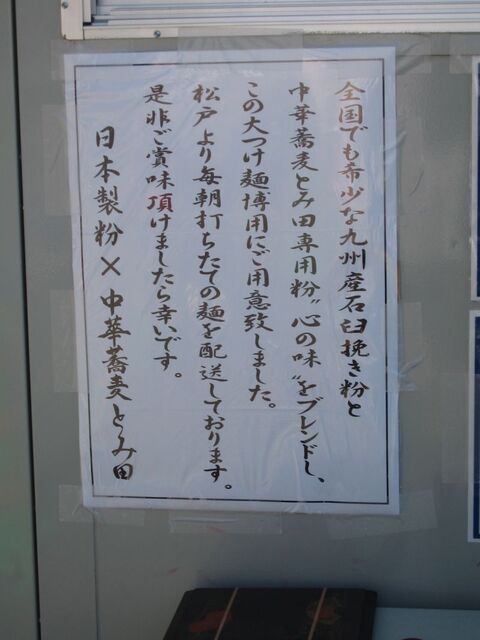 全国でも希少な九州産石臼挽き粉と
中華蕎麦とみ田専用粉"心の味"をブレンドし、
この大つけ麺博用にご用意致しました。
松戸より毎朝打ちたての麺を配送しております。
是非ご賞味頂けましたら幸いです。
日本製粉×中華蕎麦とみ田